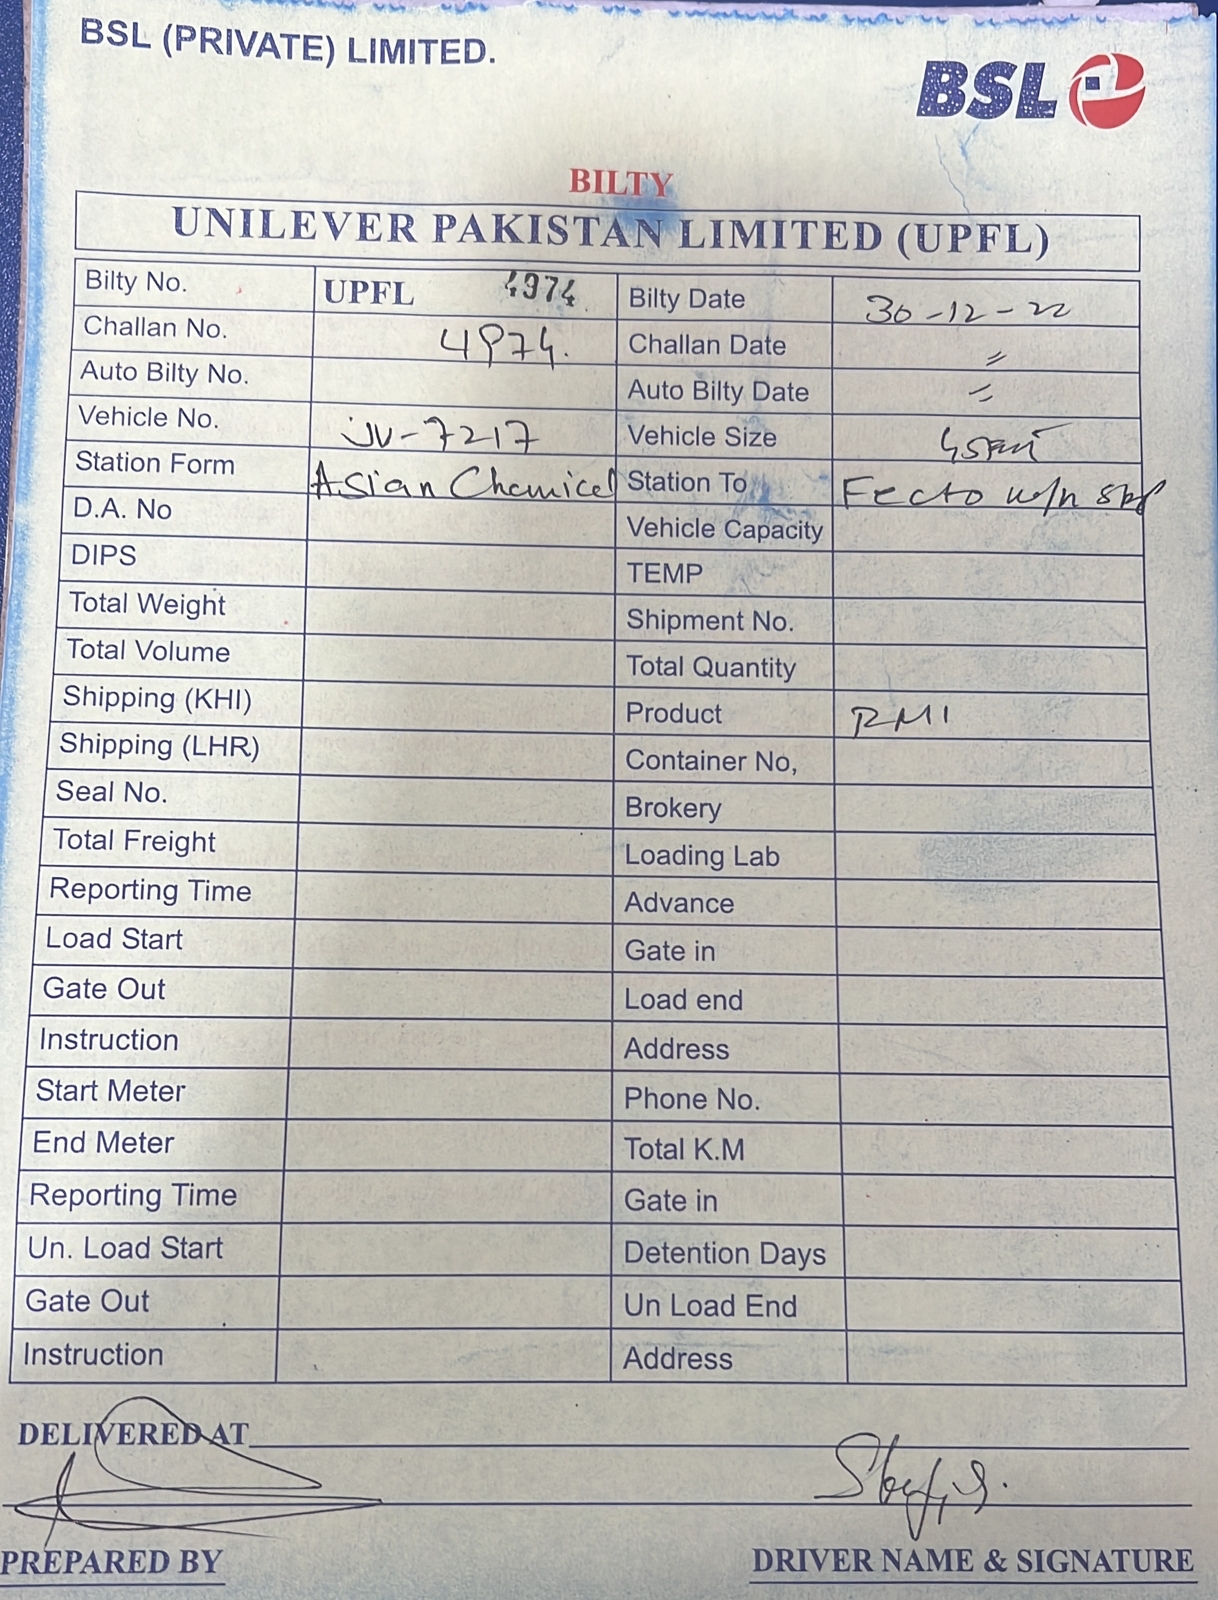 BSL (PRIVATE) LIMITED.
BSL
BILTY
UNILEVER PAKISTAN LIMITED (UPFL)
Bilty No. UPFL 4974 Bilty Date 30-12-22
Challan No. 4974. Challan Date 〃
Auto Bilty No. Auto Bilty Date 〃
Vehicle No. JV-7217 Vehicle Size
Station Form Asian Chemical Station To Fecto w/h
D.A. No Vehicle Capacity
DIPS TEMP
Total Weight Shipment No.
Total Volume Total Quantity
Shipping (KHI) Product RMI
Shipping (LHR) Container No,
Seal No. Brokery
Total Freight Loading Lab
Reporting Time Advance
Load Start Gate in
Gate Out Load end
Instruction Address
Start Meter Phone No.
End Meter Total K.M
Reporting Time Gate in
Un. Load Start Detention Days
Gate Out Un Load End
Instruction Address
DELIVERED AT
PREPARED BY DRIVER NAME & SIGNATURE